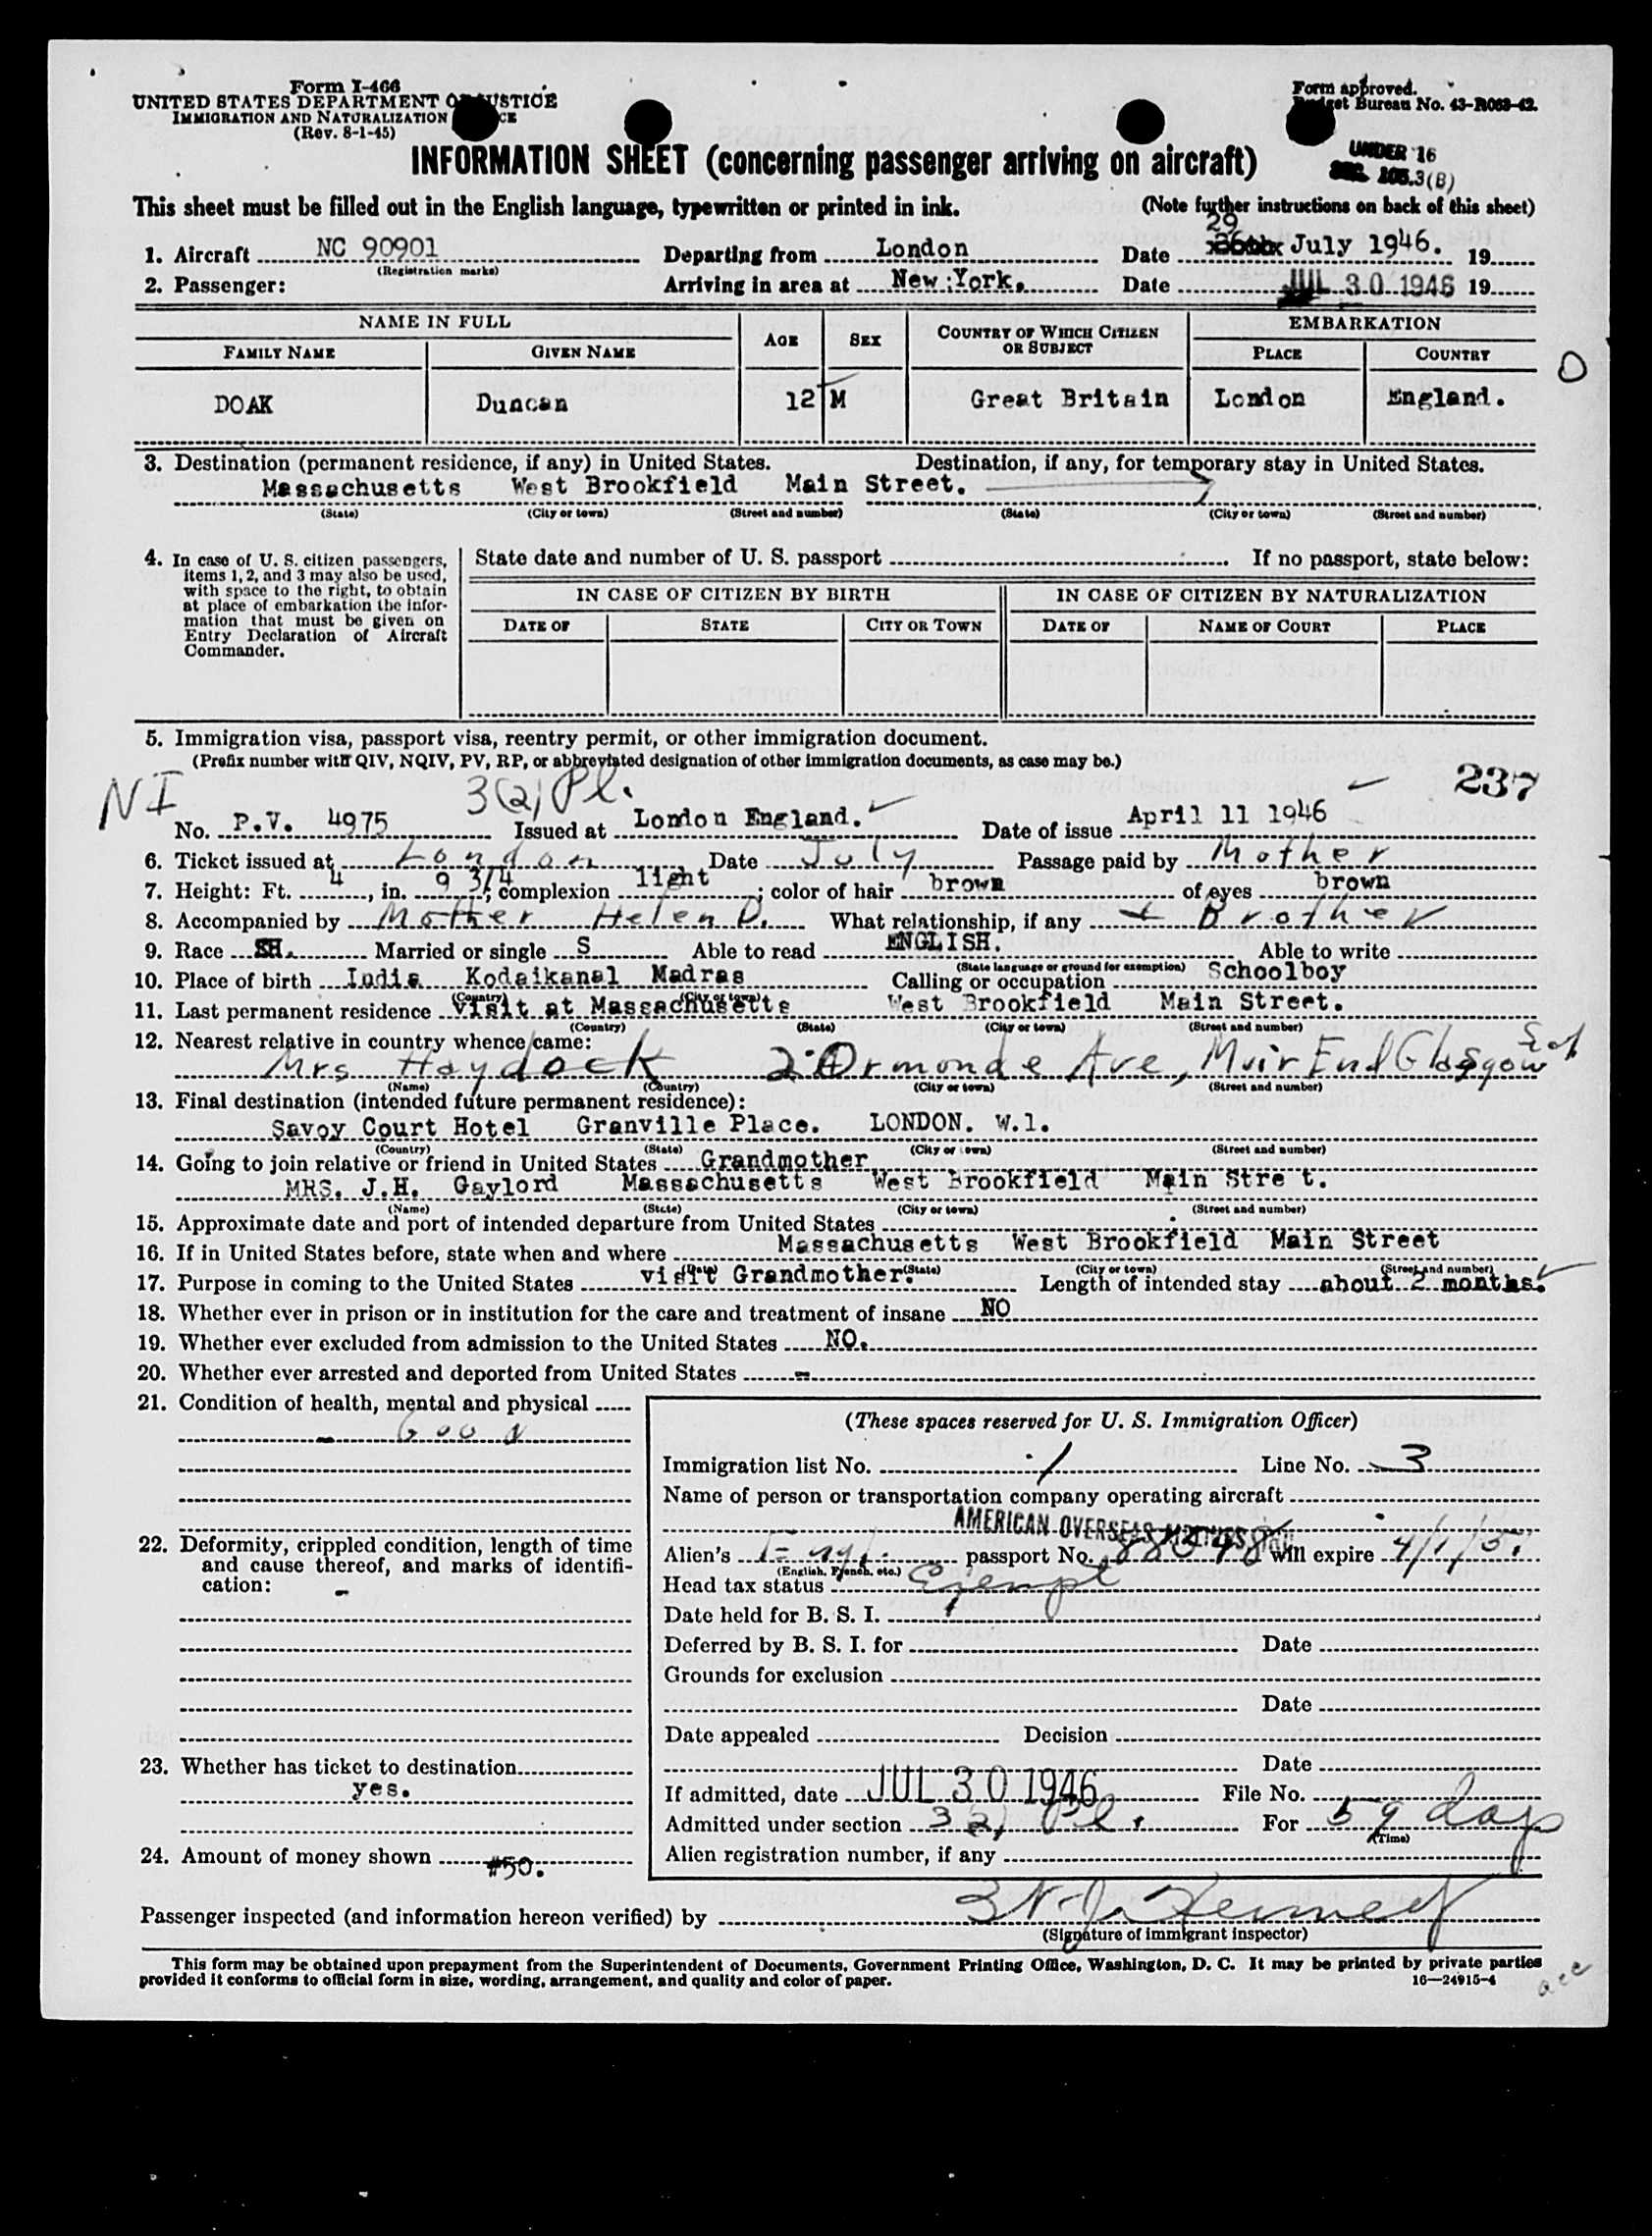 Form I-466
UNITED STATES DEPARTMENT OF JUSTICE
IMMIGRATION AND NATURALIZATION
(Rev. 8-1-45)
Form approved.
Budget Bureau No. 43-R063-42.
UNDER 16
SEC. 105.3(B)
INFORMATION SHEET (concerning passenger arriving on aircraft)
This sheet must be filled out in the English language, typewritten or printed in ink. (Note further instructions on back of this sheet)
29
1. Aircraft NC 90901 Departing from London Date July 1946. 19
(Registration marks)
2. Passenger: Arriving in area at New York. Date JUL 30 1946 19
NAME IN FULL AGE SEX COUNTRY OF WHICH CITIZEN OR SUBJECT EMBARKATION
FAMILY NAME GIVEN NAME PLACE COUNTRY
DOAK Duncan 12 M Great Britain London England.
3. Destination (permanent residence, if any) in United States. Destination, if any, for temporary stay in United States.
Massachusetts West Brookfield Main Street.
(State) (City or town) (Street and number) (State) (City or town) (Street and number)
4. In case of U. S. citizen passengers, items 1, 2, and 3 may also be used, with space to the right, to obtain at place of embarkation the information that must be given on Entry Declaration of Aircraft Commander.
State date and number of U. S. passport If no passport, state below:
IN CASE OF CITIZEN BY BIRTH IN CASE OF CITIZEN BY NATURALIZATION
DATE OF STATE CITY OR TOWN DATE OF NAME OF COURT PLACE
5. Immigration visa, passport visa, reentry permit, or other immigration document.
(Prefix number with QIV, NQIV, PV, RP, or abbreviated designation of other immigration documents, as case may be.)
NI 3(2) Pl. 237
No. P.V. 4975 Issued at London England. Date of issue April 11 1946
6. Ticket issued at London Date July Passage paid by Mother
7. Height: Ft. 4, in. 9 3/4; complexion light; color of hair brown of eyes brown
8. Accompanied by Mother Helen D. What relationship, if any + Brother
9. Race SH. Married or single S Able to read ENGLISH. Able to write
(State language or ground for exemption)
10. Place of birth India Kodaikanal Madras Calling or occupation Schoolboy
(Country) (City or town)
11. Last permanent residence Visit at Massachusetts West Brookfield Main Street.
(Country) (State) (City or town) (Street and number)
12. Nearest relative in country whence came:
Mrs Haydock 2 Ormonde Ave, Muir End Glasgow Scot
(Name) (Country) (City or town) (Street and number)
13. Final destination (intended future permanent residence):
Savoy Court Hotel Granville Place. LONDON. W.1.
(Country) (State) (City or town) (Street and number)
14. Going to join relative or friend in United States Grandmother
MRS. J.H. Gaylord Massachusetts West Brookfield Main Stre t.
(Name) (State) (City or town) (Street and number)
15. Approximate date and port of intended departure from United States
16. If in United States before, state when and where Massachusetts West Brookfield Main Street
(Date) (State) (City or town) (Street and number)
17. Purpose in coming to the United States visit Grandmother. Length of intended stay about 2 months.
18. Whether ever in prison or in institution for the care and treatment of insane NO
19. Whether ever excluded from admission to the United States NO.
20. Whether ever arrested and deported from United States -
21. Condition of health, mental and physical
- Good
22. Deformity, crippled condition, length of time and cause thereof, and marks of identification: -
23. Whether has ticket to destination
yes.
24. Amount of money shown #50.
(These spaces reserved for U. S. Immigration Officer)
Immigration list No. 1 Line No. 3
Name of person or transportation company operating aircraft
AMERICAN OVERSEAS AIRLINES INC
Alien's Engl. passport No. will expire 4/1/5
(English, French, etc.)
Head tax status Exempt
Date held for B. S. I.
Deferred by B. S. I. for Date
Grounds for exclusion
Date
Date appealed Decision
Date
If admitted, date JUL 30 1946 File No.
Admitted under section 3(2) Pl. For 59 days
(Time)
Alien registration number, if any
Passenger inspected (and information hereon verified) by
(Signature of immigrant inspector)
This form may be obtained upon prepayment from the Superintendent of Documents, Government Printing Office, Washington, D. C. It may be printed by private parties
provided it conforms to official form in size, wording, arrangement, and quality and color of paper. 16—24915-4